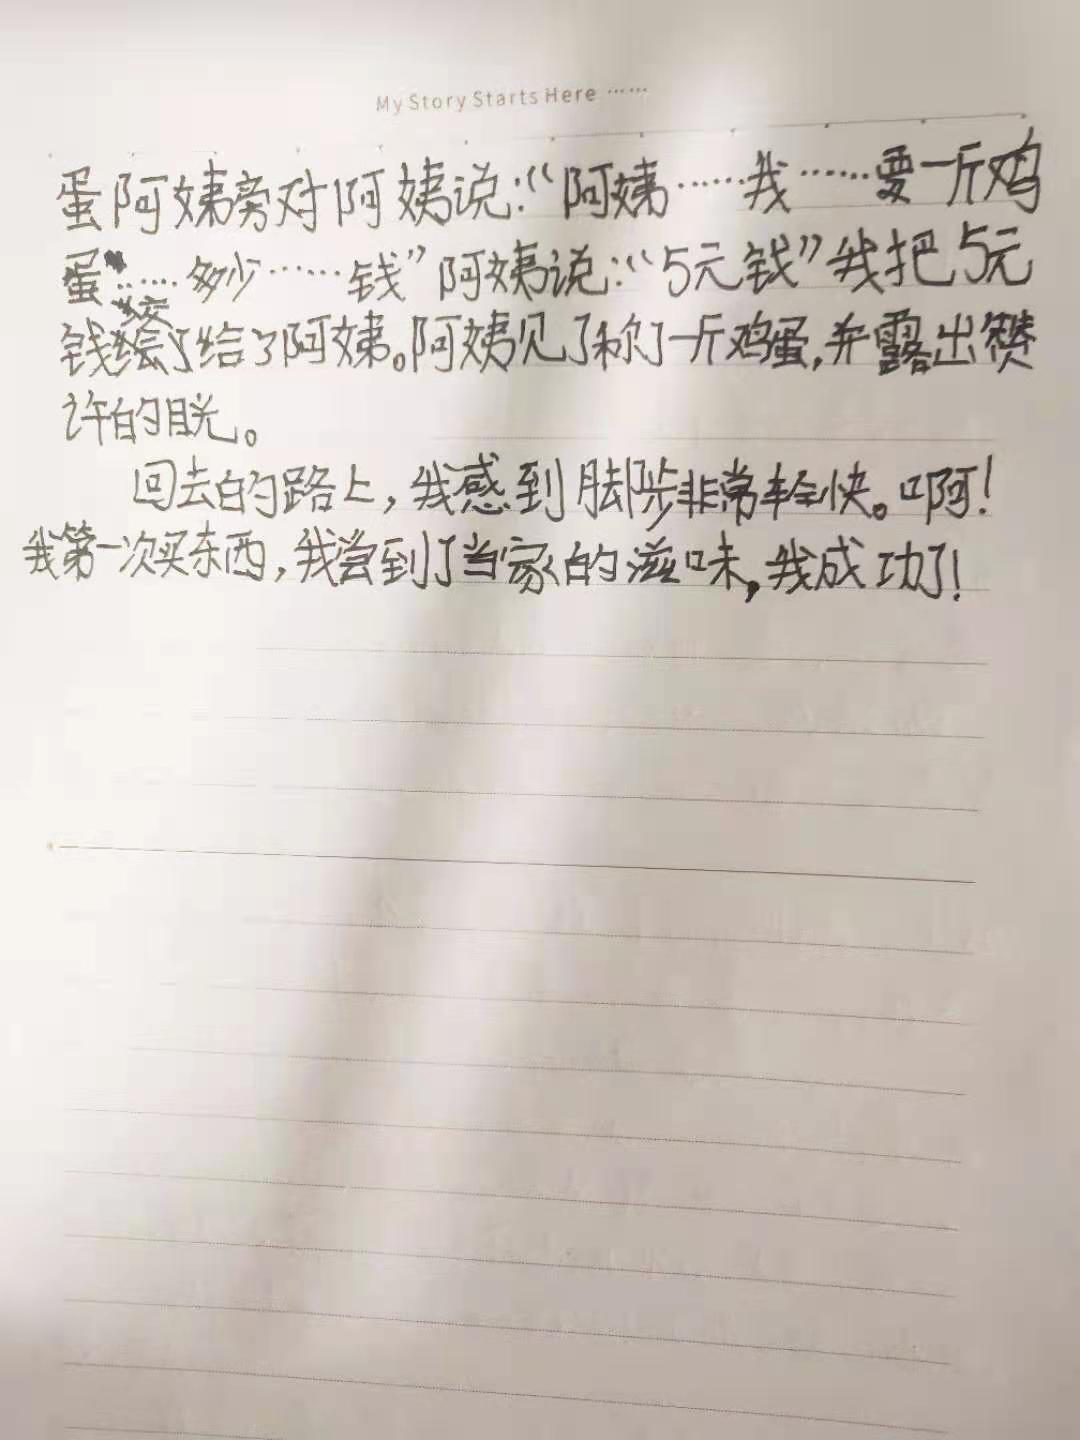 My Story Starts Here ……
蛋阿姨旁对阿姨说：“阿姨……我……要一斤鸡
蛋……多少……钱”阿姨说：“5元钱”我把5元
钱给了阿姨。阿姨见了称了一斤鸡蛋，并露出赞
许的目光。
回去的路上，我感到脚步非常轻快。啊！
我第一次买东西，我尝到了当家的滋味，我成功了！